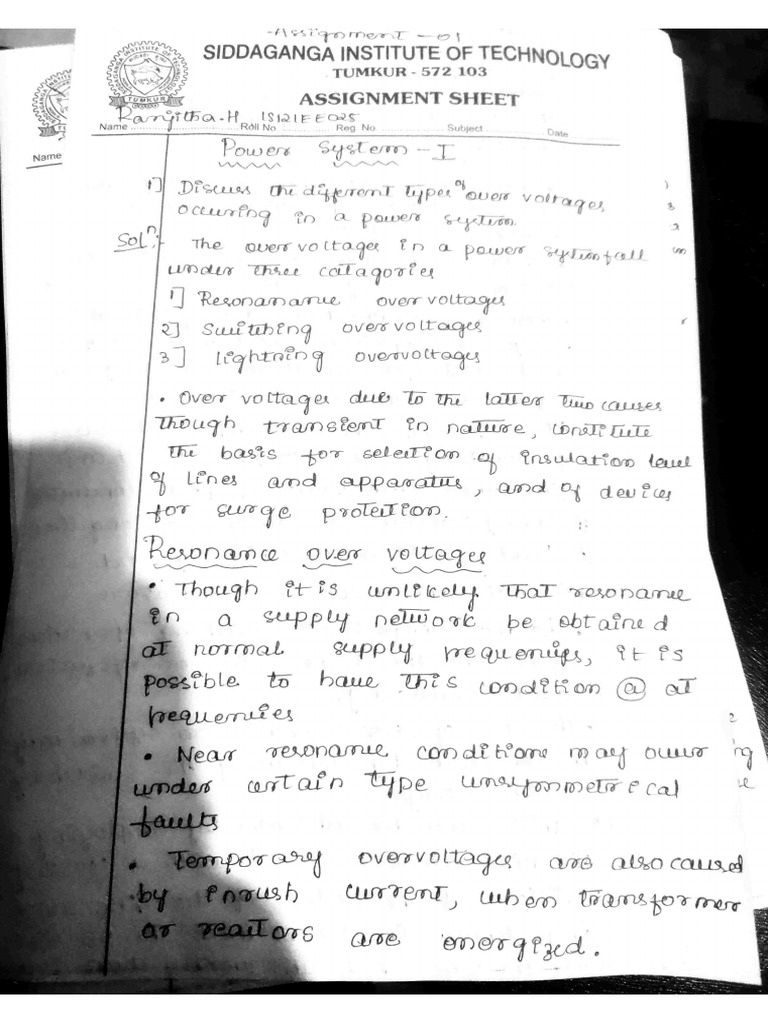 -Assignment -01
SIDDAGANGA INSTITUTE OF TECHNOLOGY
TUMKUR - 572 103
ASSIGNMENT SHEET
Ranjitha.H 1SI21EE025
Name Roll No Reg. No Subject Date
Name
Power System - I
1] Discuss the different types of over voltages
occuring in a power system.
Soln:- The over voltages in a power system fall
under three catagories
1] Resonanance over voltages
2] Switching overvoltages
3] lightning overvoltages
• Over voltages due to the latter two causes
though transient in nature, constitute
the basis for selection of insulation level
of lines and apparatus, and of devices
for surge protection.
Resonance over voltages
• Though it is unlikely that resonance
in a supply network be obtained
at normal supply frequencies, it is
possible to have this condition @ at
frequencies
• Near resonance conditions may occur
under certain type unsymmetrical
faults
• Temporary overvoltages are also caused
by inrush current, when transformer
or reactors are energized.